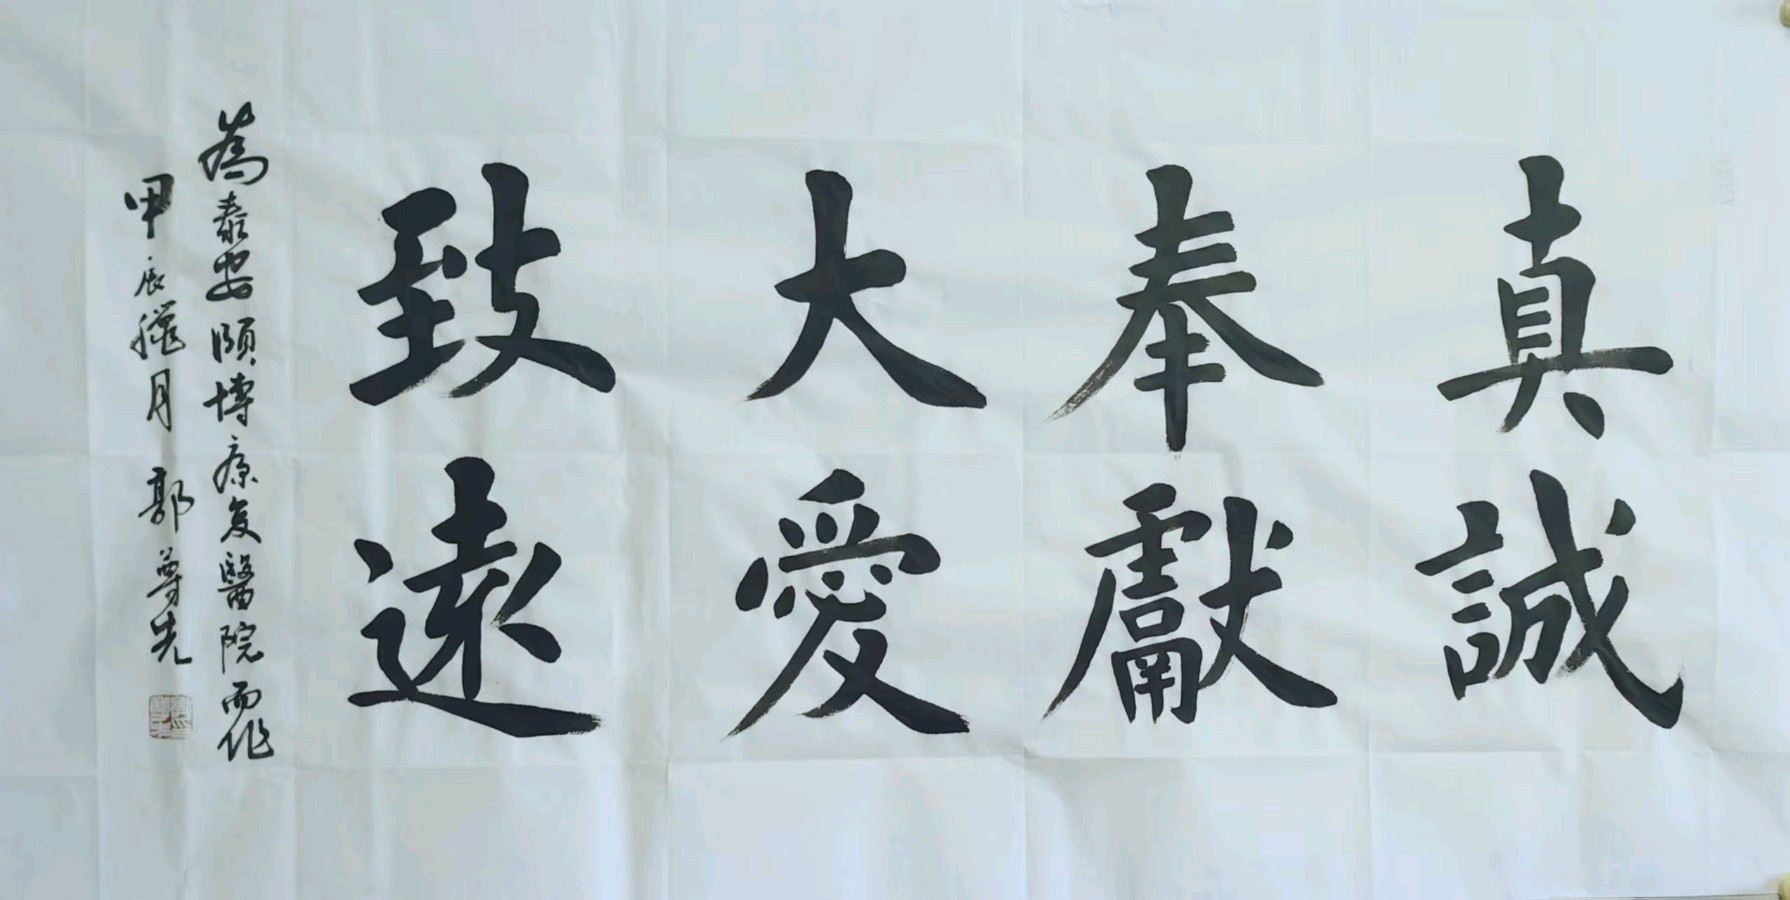 真誠
奉獻
大愛
致遠
為泰安頤博康复醫院而作
甲辰臘月 郭尊先